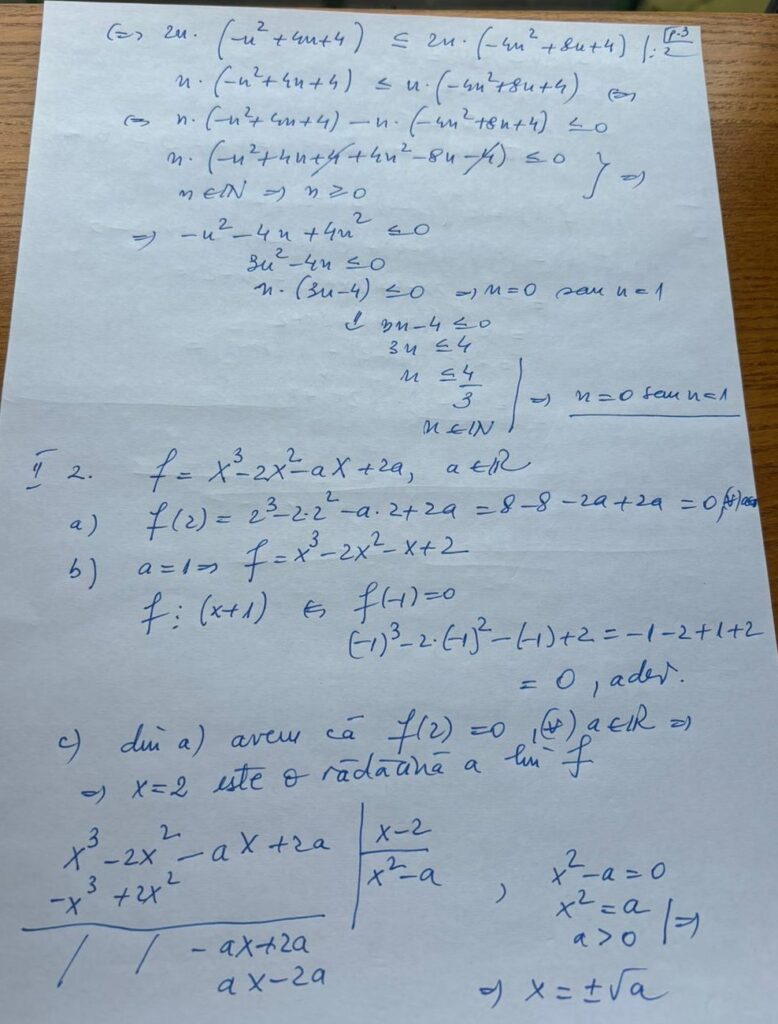 (=> 2n · (-n²+4n+4) ≤ 2n · (-4n²+8n+4) | : 2
p.3
n · (-n²+4n+4) ≤ n · (-4n²+8n+4) <=>
<=> n · (-n²+4n+4) - n · (-4n²+8n+4) ≤ 0
n · (-n²+4n+4+4n²-8n-4) ≤ 0 } =>
n ∈ ℕ => n ≥ 0
=> -n²-4n+4n² ≤ 0
3n²-4n ≤ 0
n · (3n-4) ≤ 0 => n=0 sau n=1
↓ 3n-4 ≤ 0
3n ≤ 4
n ≤ 4/3
n ∈ ℕ | => n=0 sau n=1
II 2. f = X³-2X²-aX+2a, a ∈ ℝ
a) f(2) = 2³-2·2²-a·2+2a = 8-8-2a+2a = 0, (∀) a
b) a=1 => f = x³-2x²-x+2
f ⋮ (x+1) <= f(-1)=0
(-1)³-2·(-1)²-(-1)+2 = -1-2+1+2
= 0, adev.
c) din a) avem că f(2)=0, (∀) a ∈ ℝ =>
=> x=2 este o rădăcină a lui f
x³-2x²-ax+2a | x-2
-x³+2x² | x²-a , x²-a=0
x²=a
/ / -ax+2a a>0 | =>
ax-2a
=> x=±√a